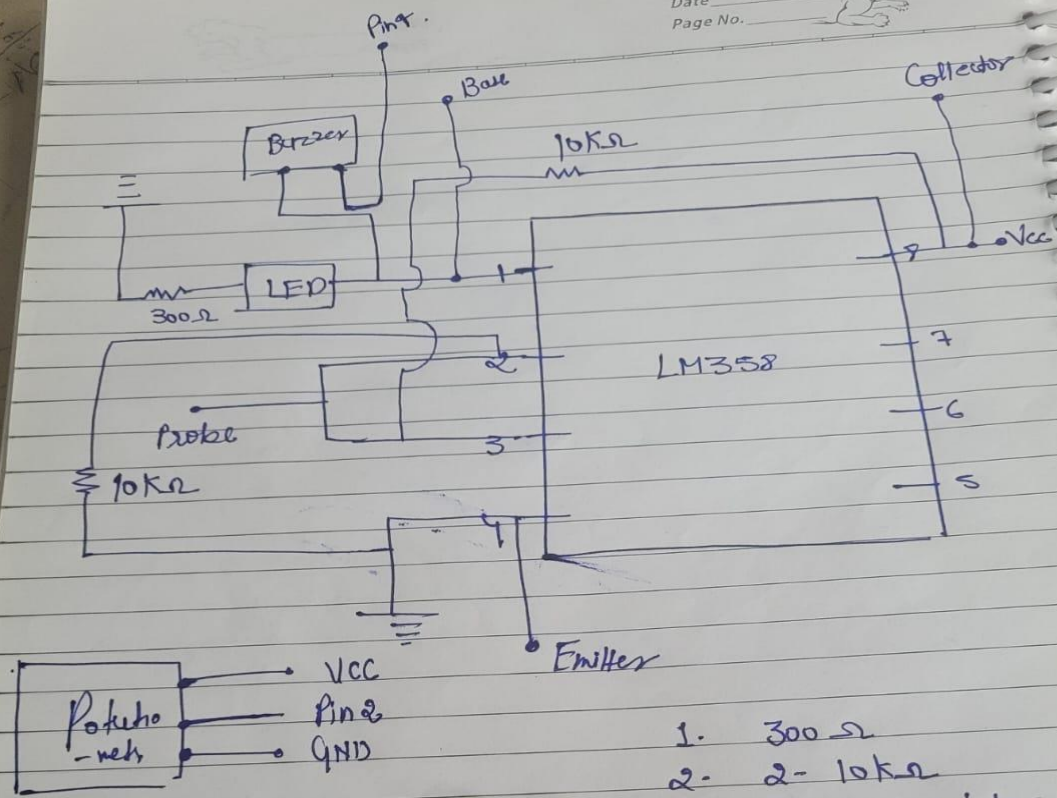 Date
Page No.
Pin4.
Base
Collector
Buzzer
10KΩ
Vcc
8
1
LED
300Ω
7
2
LM358
6
Probe
3
10KΩ
5
4
Emitter
VCC
Potentio
-mets
Pin2
GND
1. 300 Ω
2- 2- 10KΩ